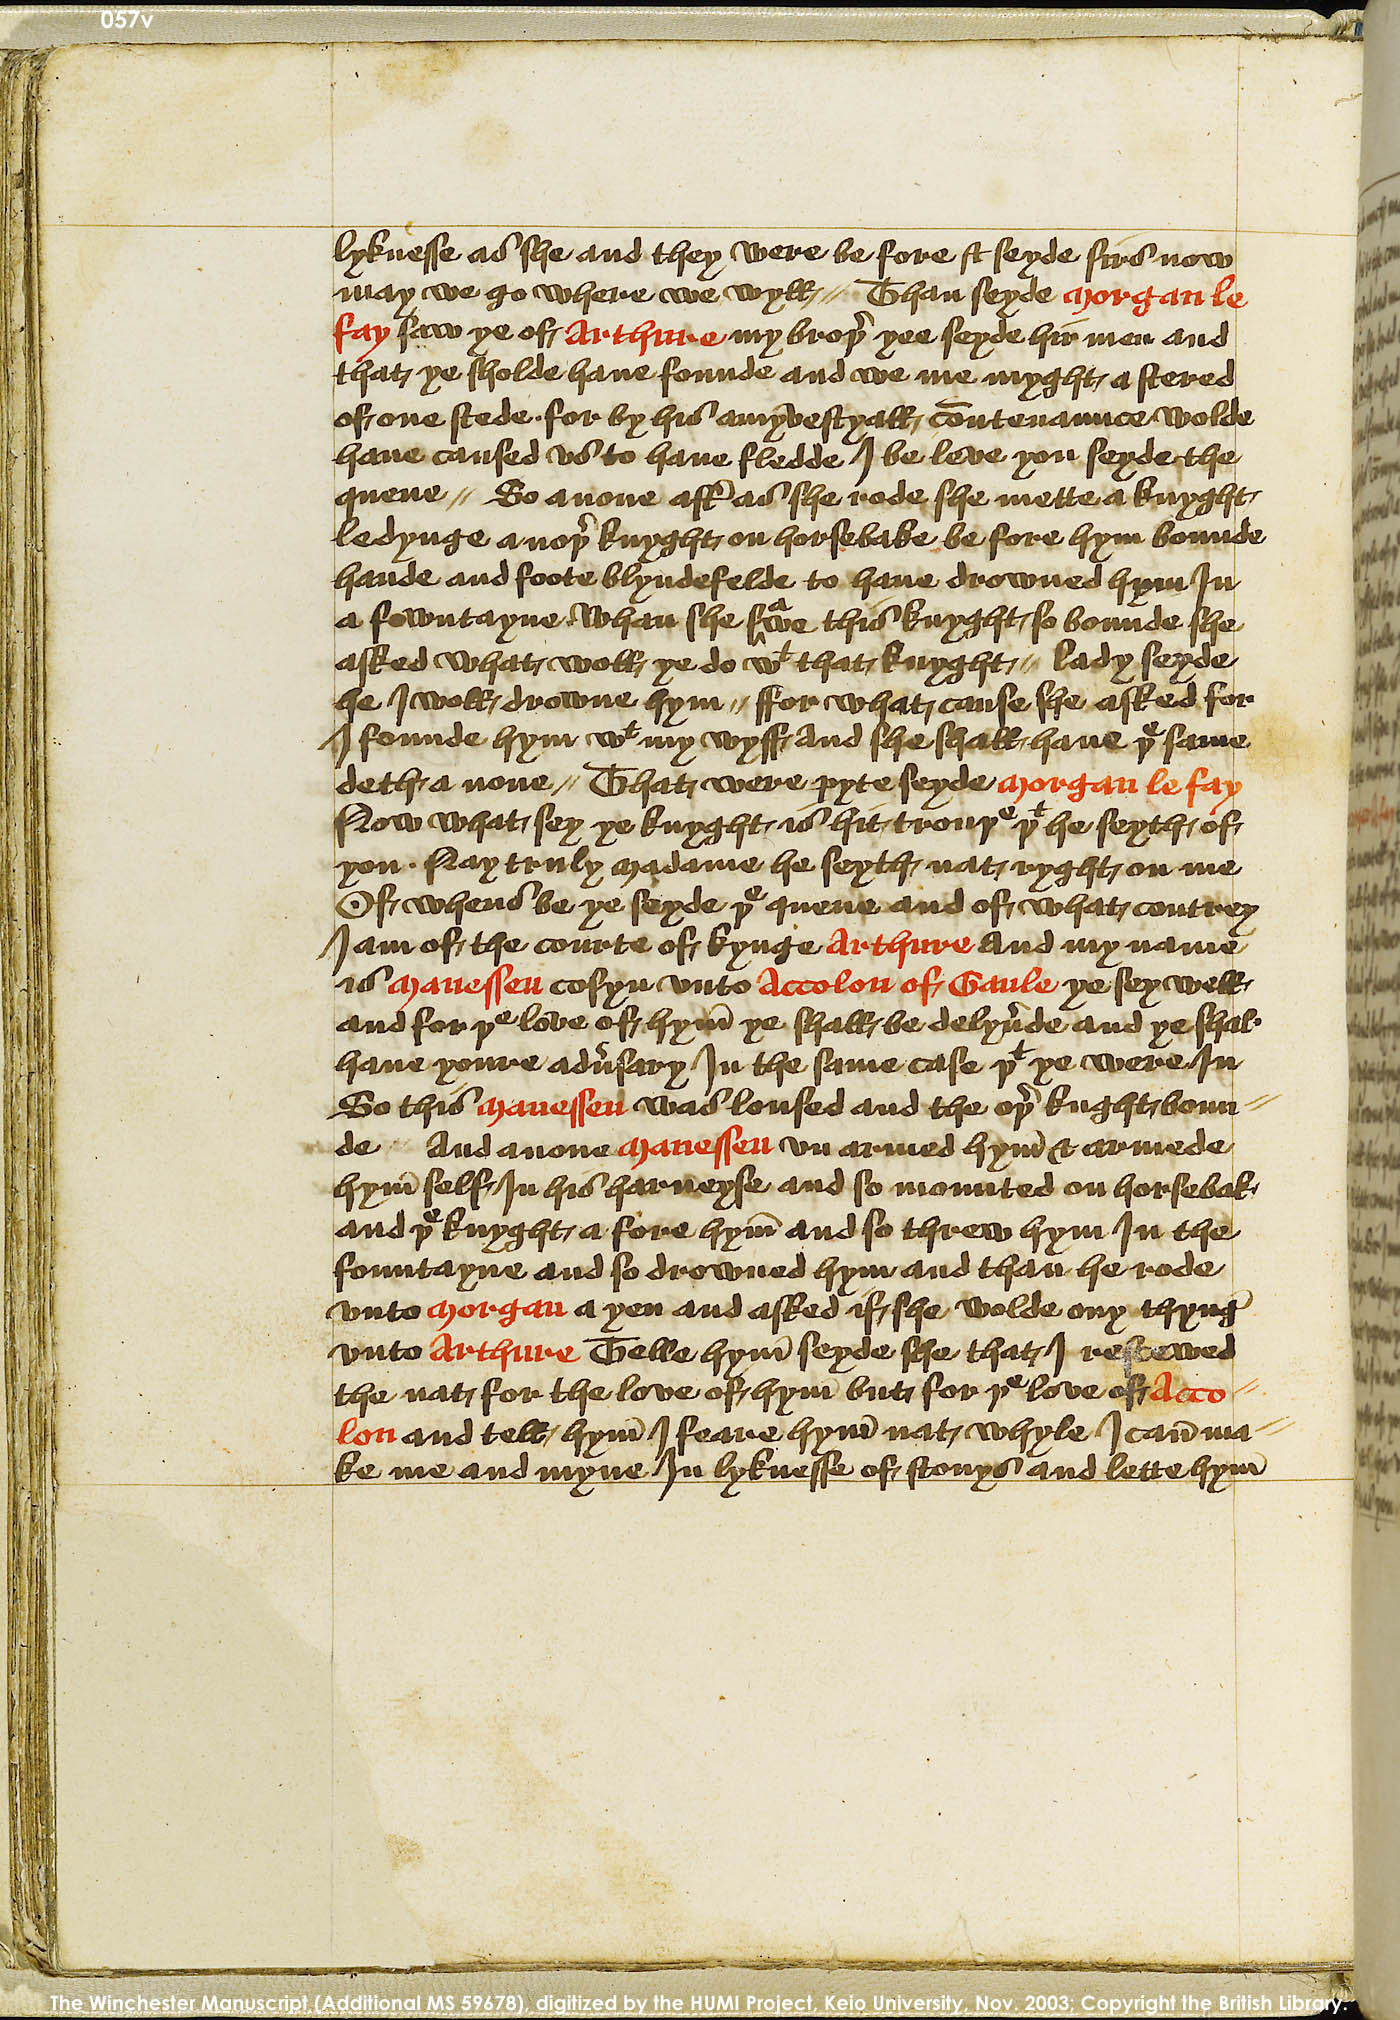 057v
lyknesse as she and they were be fore & seyde sirs now
may we go where we wyll // Than seyde Morgan le
fay saw ye of Arthure my broþer yee seyde hir men and
that ye sholde haue founde and we me myght a stered
of one stede · for by his amyvestyall countenaunce wolde
haue caused vs to haue fledde I be leve you seyde the
quene // So anone aftir as she rode she mette a knyght
ledynge a noþer knyght on horsebake be fore hym bounde
hande and foote blyndefelde to haue drowned hym In
a fowntayne whan she sawe this knyght so bounde she
asked what woll ye do wt that knyght // lady seyde
he I woll drowne hym // ffor what cause she asked for
I founde hym wt my wyff And she shall haue þe same
deth a none // That were pyte seyde Morgan le fay
Now what sey ye knyght is hit trouþe þt he seyth of
you · Nay truly Madame he seyth nat ryght on me
Of whens be ye seyde þe quene and of what contrey
I am of the courte of kynge Arthure And my name
is Manessen cosyn vnto Accolon of Gaule ye sey well
and for þe love of hym ye shall be delyuerde and ye shal
haue youre aduersary In the same case þt ye were In
So this Manessen was loused and the oþer knght boun //
de // And anone Manessen vn armed hym & armede
hym self In his harneyse and so mounted on horsebak
and þe knyght a fore hym and so threw hym In the
fountayne and so drowned hym and than he rode
vnto Morgan a yen and asked if she wolde ony thyng
vnto Arthure Telle hym seyde she that I rescewed
the nat for the love of hym but for þe love of Acco //
lon and tell hym I feare hym nat whyle I can ma //
ke me and myne In lyknesse of stonys and lette hym
The Winchester Manuscript (Additional MS 59678), digitized by the HUMI Project, Keio University, Nov. 2003; Copyright the British Library.